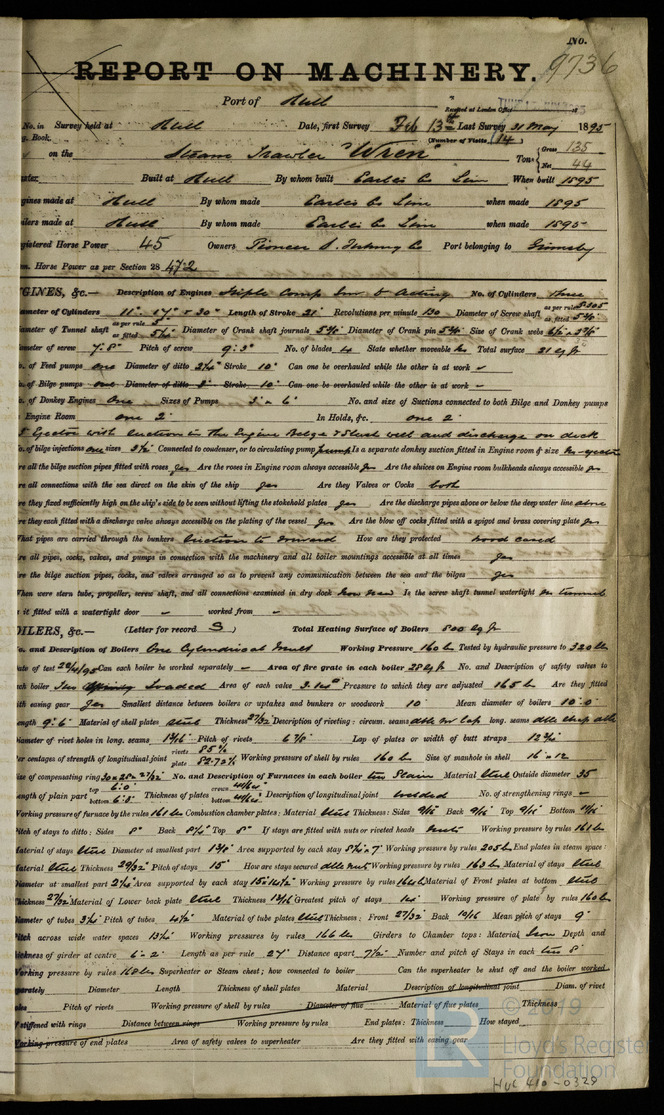 No. 9736
REPORT ON MACHINERY.
Port of Hull
Received at London Office
No. in Survey held at Hull Date, first Survey Feb 13th Last Survey 31 May 1895
Book. (Number of Visits 14)
on the Steam Trawler "Wren" Tons Gross 135 Net 44
Built at Hull By whom built Earle's Co Lim When built 1895
gines made at Hull By whom made Earle's Co Lim when made 1895
ilers made at Hull By whom made Earle's Co Lim when made 1895
gistered Horse Power 45 Owners Pioneer S. Fishing Co Port belonging to Grimsby
m. Horse Power as per Section 28 47.2
GINES, &c.— Description of Engines Triple Comp Inv & Acting No. of Cylinders three
ameter of Cylinders 11" 17" & 30" Length of Stroke 21" Revolutions per minute 130 Diameter of Screw shaft as per rule as fitted
ameter of Tunnel shaft as per rule as fitted Diameter of Crank shaft journals Diameter of Crank pin Size of Crank webs
ameter of screw 7'.8" Pitch of screw 9'.3" No. of blades 4 State whether moveable no Total surface 21 sq ft
o. of Feed pumps one Diameter of ditto Stroke 10" Can one be overhauled while the other is at work -
o. of Bilge pumps one Diameter of ditto Stroke 10" Can one be overhauled while the other is at work -
o. of Donkey Engines One Sizes of Pumps 3" x 6" No. and size of Suctions connected to both Bilge and Donkey pumps
Engine Room one 2" In Holds, &c. one 2"
Ejector with suction in the Engine Bilge & Slush well and discharge on deck
o. of bilge injections one sizes Connected to condenser, or to circulating pump pump Is a separate donkey suction fitted in Engine room & size
re all the bilge suction pipes fitted with roses yes Are the roses in Engine room always accessible yes Are the sluices on Engine room bulkheads always accessible yes
re all connections with the sea direct on the skin of the ship yes Are they Valves or Cocks both
re they fixed sufficiently high on the ship's side to be seen without lifting the stokehold plates yes Are the discharge pipes above or below the deep water line above
re they each fitted with a discharge valve always accessible on the plating of the vessel yes Are the blow off cocks fitted with a spigot and brass covering plate yes
What pipes are carried through the bunkers Suction to forward How are they protected wood cased
re all pipes, cocks, valves, and pumps in connection with the machinery and all boiler mountings accessible at all times yes
re the bilge suction pipes, cocks, and valves arranged so as to prevent any communication between the sea and the bilges yes
When were stern tube, propeller, screw shaft, and all connections examined in dry dock Is the screw shaft tunnel watertight no tunnel
s it fitted with a watertight door - worked from -
OILERS, &c.— (Letter for record S) Total Heating Surface of Boilers 800 sq ft
o. and Description of Boilers One Cylindrical Mult Working Pressure 160 lb Tested by hydraulic pressure to 320 lb
ate of test Can each boiler be worked separately - Area of fire grate in each boiler 28 sq ft No. and Description of safety valves to
ch boiler Two Loaded Area of each valve Pressure to which they are adjusted 165 lb Are they fitted
ith easing gear yes Smallest distance between boilers or uptakes and bunkers or woodwork 10" Mean diameter of boilers 10'.0"
ength 9'.6" Material of shell plates Steel Thickness 27/32 Description of riveting: circum. seams dble riv lap long. seams
iameter of rivet holes in long. seams Pitch of rivets 6 7/8" Lap of plates or width of butt straps
er centages of strength of longitudinal joint rivets plate 82.73% Working pressure of shell by rules 160 lb Size of manhole in shell 16" x 12"
ize of compensating ring No. and Description of Furnaces in each boiler two Plain Material Steel Outside diameter 35
ength of plain part top 6'.0" bottom Thickness of plates crown bottom Description of longitudinal joint welded No. of strengthening rings -
Working pressure of furnace by the rules 161 lb Combustion chamber plates: Material Steel Thickness: Sides 9/16 Back 9/16 Top 9/16 Bottom
Pitch of stays to ditto: Sides 8" Back Top 8" If stays are fitted with nuts or riveted heads nuts Working pressure by rules 161 lb
Material of stays Steel Diameter at smallest part Area supported by each stay Working pressure by rules 205 lb End plates in steam space:
Material Steel Thickness 29/32 Pitch of stays 15" How are stays secured dble nuts Working pressure by rules 163 lb Material of stays Steel
Diameter at smallest part Area supported by each stay Working pressure by rules Material of Front plates at bottom Steel
Thickness 27/32 Material of Lower back plate Steel Thickness Greatest pitch of stays 14" Working pressure of plate by rules 160 lb
Diameter of tubes 3 1/4" Pitch of tubes 4 1/2" Material of tube plates Steel Thickness: Front 27/32 Back Mean pitch of stays 9"
Pitch across wide water spaces Working pressures by rules 166 lb Girders to Chamber tops: Material Iron Depth and
hickness of girder at centre Length as per rule 27" Distance apart 7 1/2" Number and pitch of Stays in each two 8"
Working pressure by rules 168 lb Superheater or Steam chest; how connected to boiler Can the superheater be shut off and the boiler worked
parately Diameter Length Thickness of shell plates Material Description of longitudinal joint Diam. of rivet
oles Pitch of rivets Working pressure of shell by rules Diameter of flue Material of flue plates Thickness
f stiffened with rings Distance between rings Working pressure by rules End plates: Thickness How stayed
Working pressure of end plates Area of safety valves to superheater Are they fitted with easing gear
© 2019
LR Lloyd's Register
Foundation
HUL 410-0329